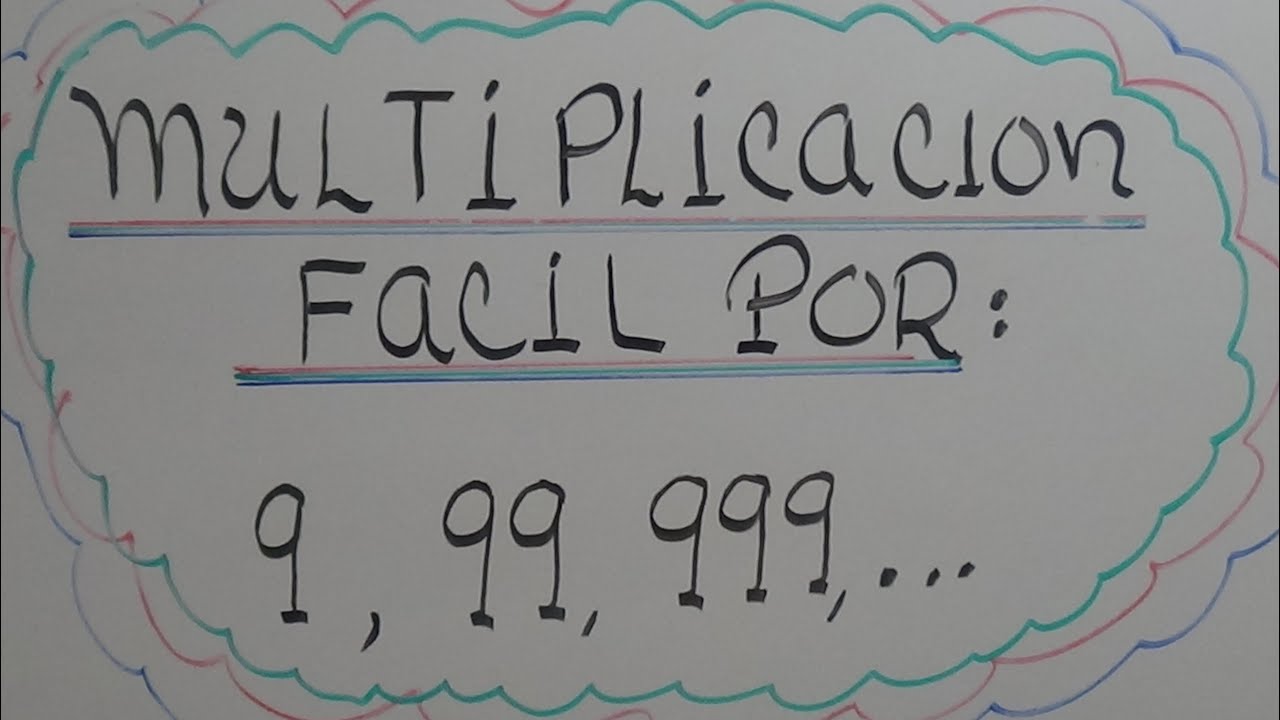 MULTIPLICACION
FACIL POR:
9, 99, 999,...